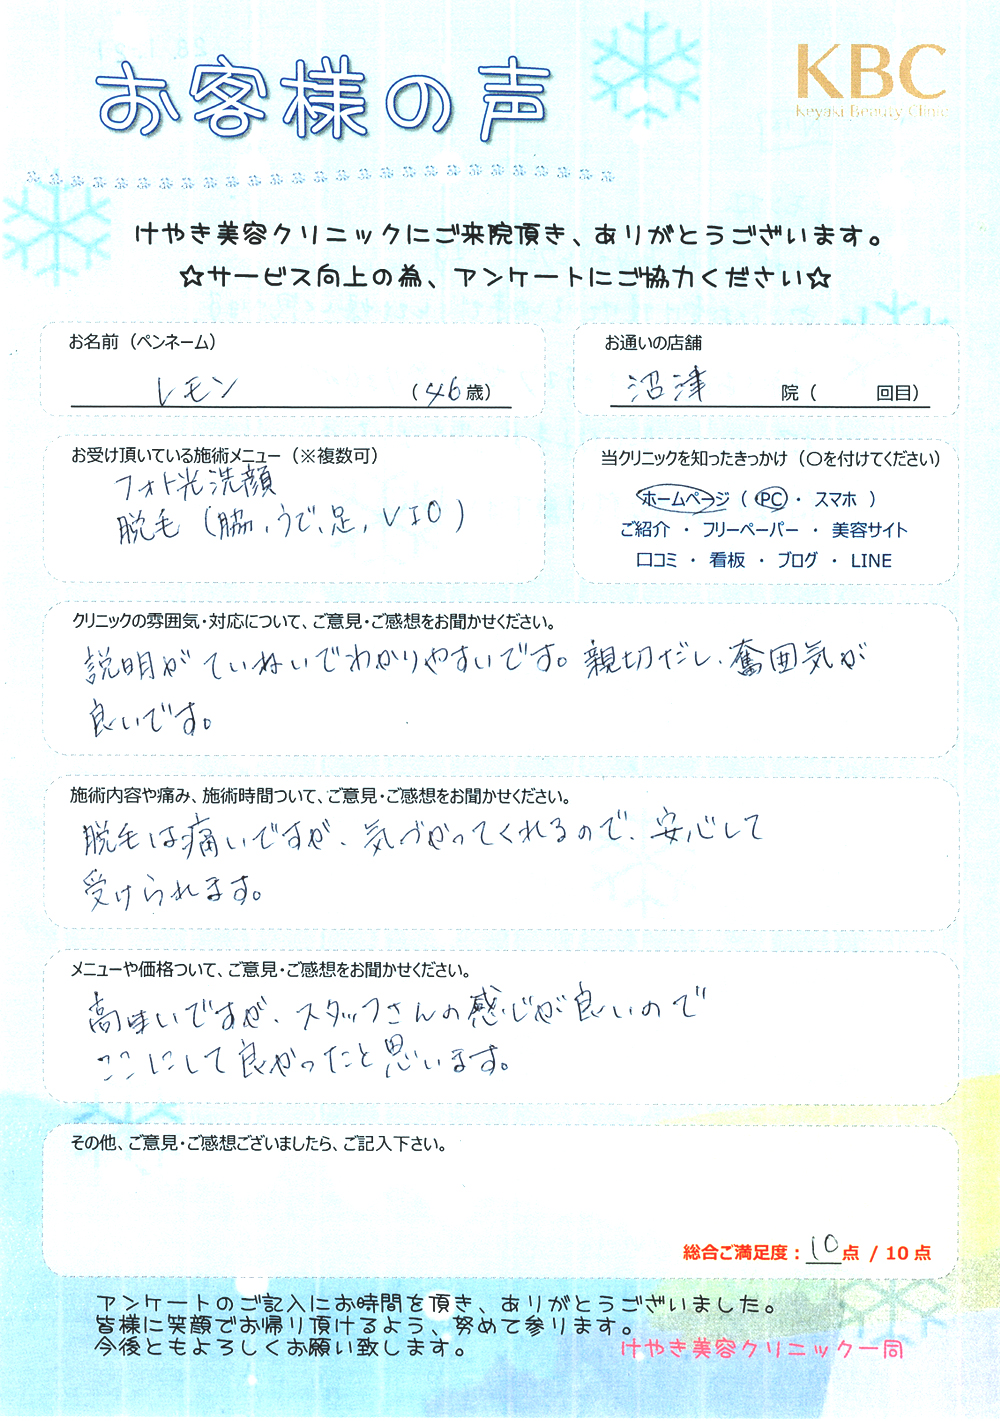 お客様の声
KBC
Keyaki Beauty Clinic
けやき美容クリニックにご来院頂き、ありがとうございます。
☆サービス向上の為、アンケートにご協力ください☆
お名前（ペンネーム）
レモン （46歳）
お通いの店舗
沼津 院（ 回目）
お受け頂いている施術メニュー（※複数可）
フォト光洗顔
脱毛（脇、うで、足、VIO）
当クリニックを知ったきっかけ（○を付けてください）
ホームページ（ PC ・ スマホ ）
ご紹介 ・ フリーペーパー ・ 美容サイト
口コミ ・ 看板 ・ ブログ ・ LINE
クリニックの雰囲気・対応について、ご意見・ご感想をお聞かせください。
説明がていねいでわかりやすいです。親切だし、奮囲気が
良いです。
施術内容や痛み、施術時間ついて、ご意見・ご感想をお聞かせください。
脱毛は痛いですが、気づかってくれるので、安心して
受けられます。
メニューや価格ついて、ご意見・ご感想をお聞かせください。
高いですが、スタッフさんの感じが良いので
ここにして良かったと思います。
その他、ご意見・ご感想ございましたら、ご記入下さい。
総合ご満足度：10点 / 10点
アンケートのご記入にお時間を頂き、ありがとうございました。
皆様に笑顔でお帰り頂けるよう、努めて参ります。
今後ともよろしくお願い致します。
けやき美容クリニック一同